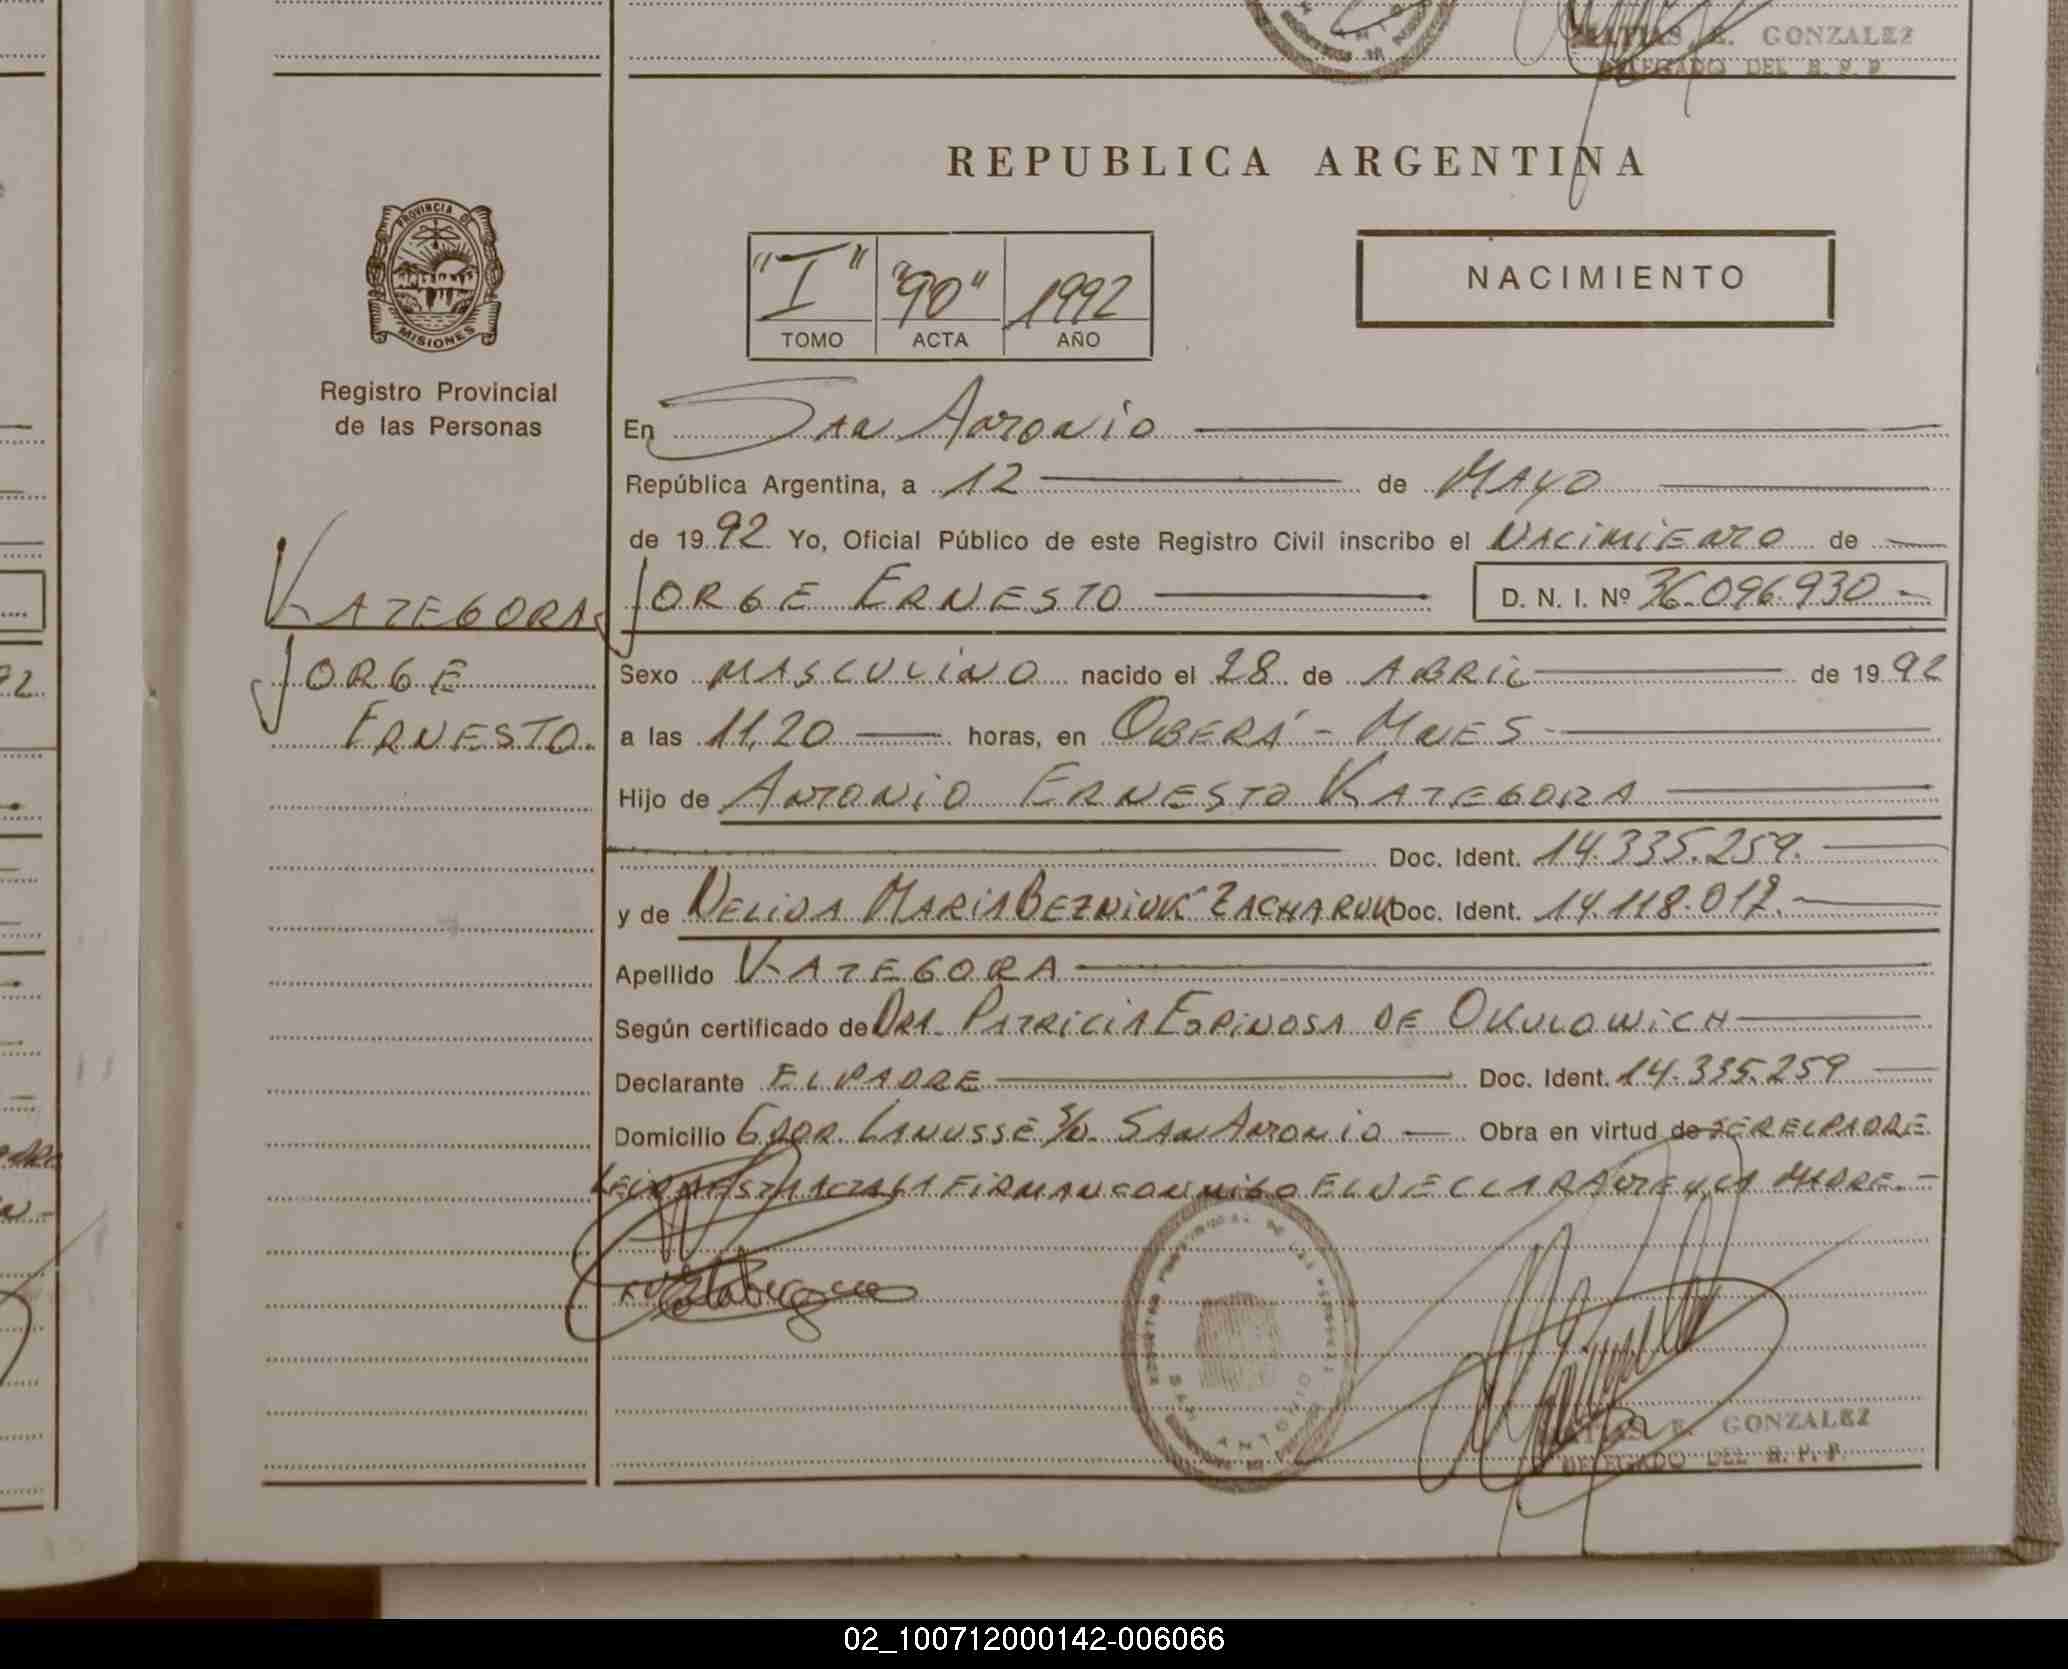 GONZALEZ
DELEGADO DEL R. P. P.
REPUBLICA ARGENTINA
PROVINCIA DE
MISIONES
Registro Provincial
de las Personas
"I" "90" 1992
TOMO ACTA AÑO
NACIMIENTO
KATEGORA
JORGE
ERNESTO.
En San Antonio
República Argentina, a 12 de Mayo
de 1992 Yo, Oficial Público de este Registro Civil inscribo el Nacimiento de
JORGE ERNESTO D. N. I. Nº 36.096.930
Sexo MASCULINO nacido el 28 de ABRIL de 1992
a las 11,20 horas, en OBERÁ - MNES
Hijo de ANTONIO ERNESTO KATEGORA
Doc. Ident. 14.335.259.
y de NELIDA MARIA BEZNIUK ZACHARUK Doc. Ident. 14.118.017.
Apellido KATEGORA
Según certificado de DRA. PATRICIA ESPINOSA DE OKULOWICH
Declarante EL PADRE Doc. Ident. 14.335.259
Domicilio GDOR. LANUSSE S/N. SAN ANTONIO Obra en virtud de SER EL PADRE
LEIDA ESTA ACTA LA FIRMAN CONMIGO EL DECLARANTE Y LA MADRE.
SAN ANTONIO
GONZALEZ
DELEGADO DEL R. P. P.
02_100712000142-006066